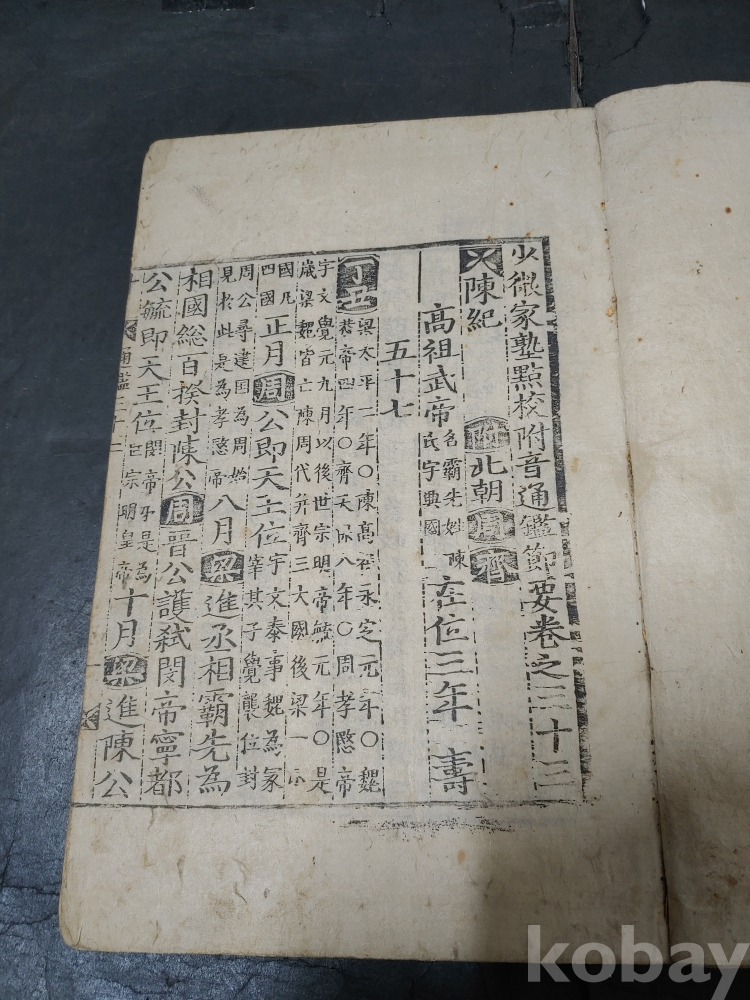 少微家塾點校附音通鑑節要卷之三十三
陳紀 附北朝周齊
高祖武帝 名霸先姓陳氏字興國 在位三年壽
五十七
丁丑 梁太平二年○陳高祖永定元年○魏恭帝四年○齊天保八年○周孝愍帝
宇文覺元九月以後世宗明帝毓元年○是歲梁魏皆亡陳周代幷齊三大國後梁一小
國凡四國 正月周公即天王位 宇文泰事魏為冢宰其子覺襲位封
周公尋建国為周始見於此是為孝愍帝 八月梁進丞相霸先為
相國總百揆封陳公周晉公護弑閔帝寧都
公毓即天王位 閔帝 是為世宗明皇帝 十月梁進陳公
通鑑三十三
kobay